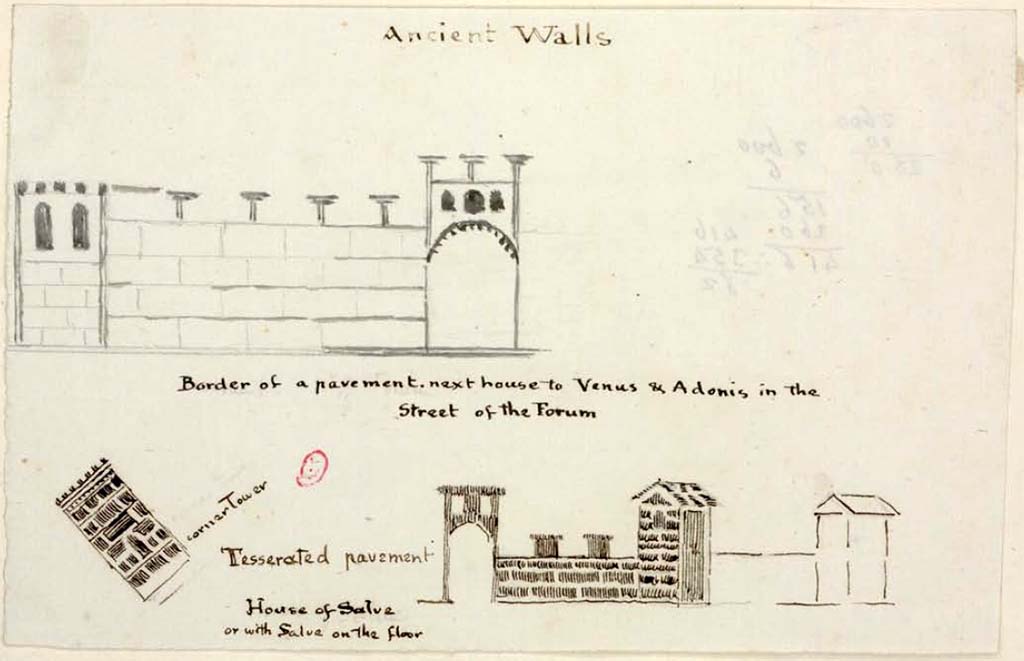 Ancient Walls
Border of a pavement. next house to Venus & Adonis in the
Street of the Forum
corner Tower
Tesserated pavement
House of Salve
or with Salve on the floor